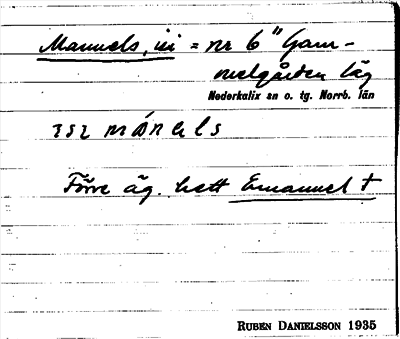 Manuels, iii = nr 6 "Gam-
melgården läg
Nederkalix sn o. tg. Norrb. län
Förre äg. hett Emanuel †
RUBEN DANIELSSON 1935